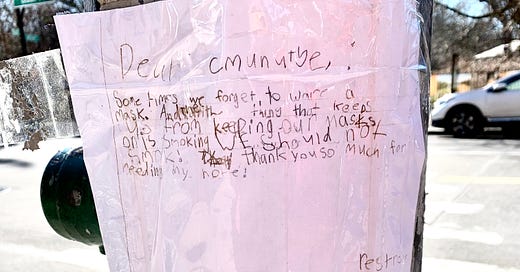 Dear cmunutye,
Some times we forget to ware a
mask. And thing that keeps
us from keeping our masks
on is smoking we should not
smok! thank you so much for
reeding my note!